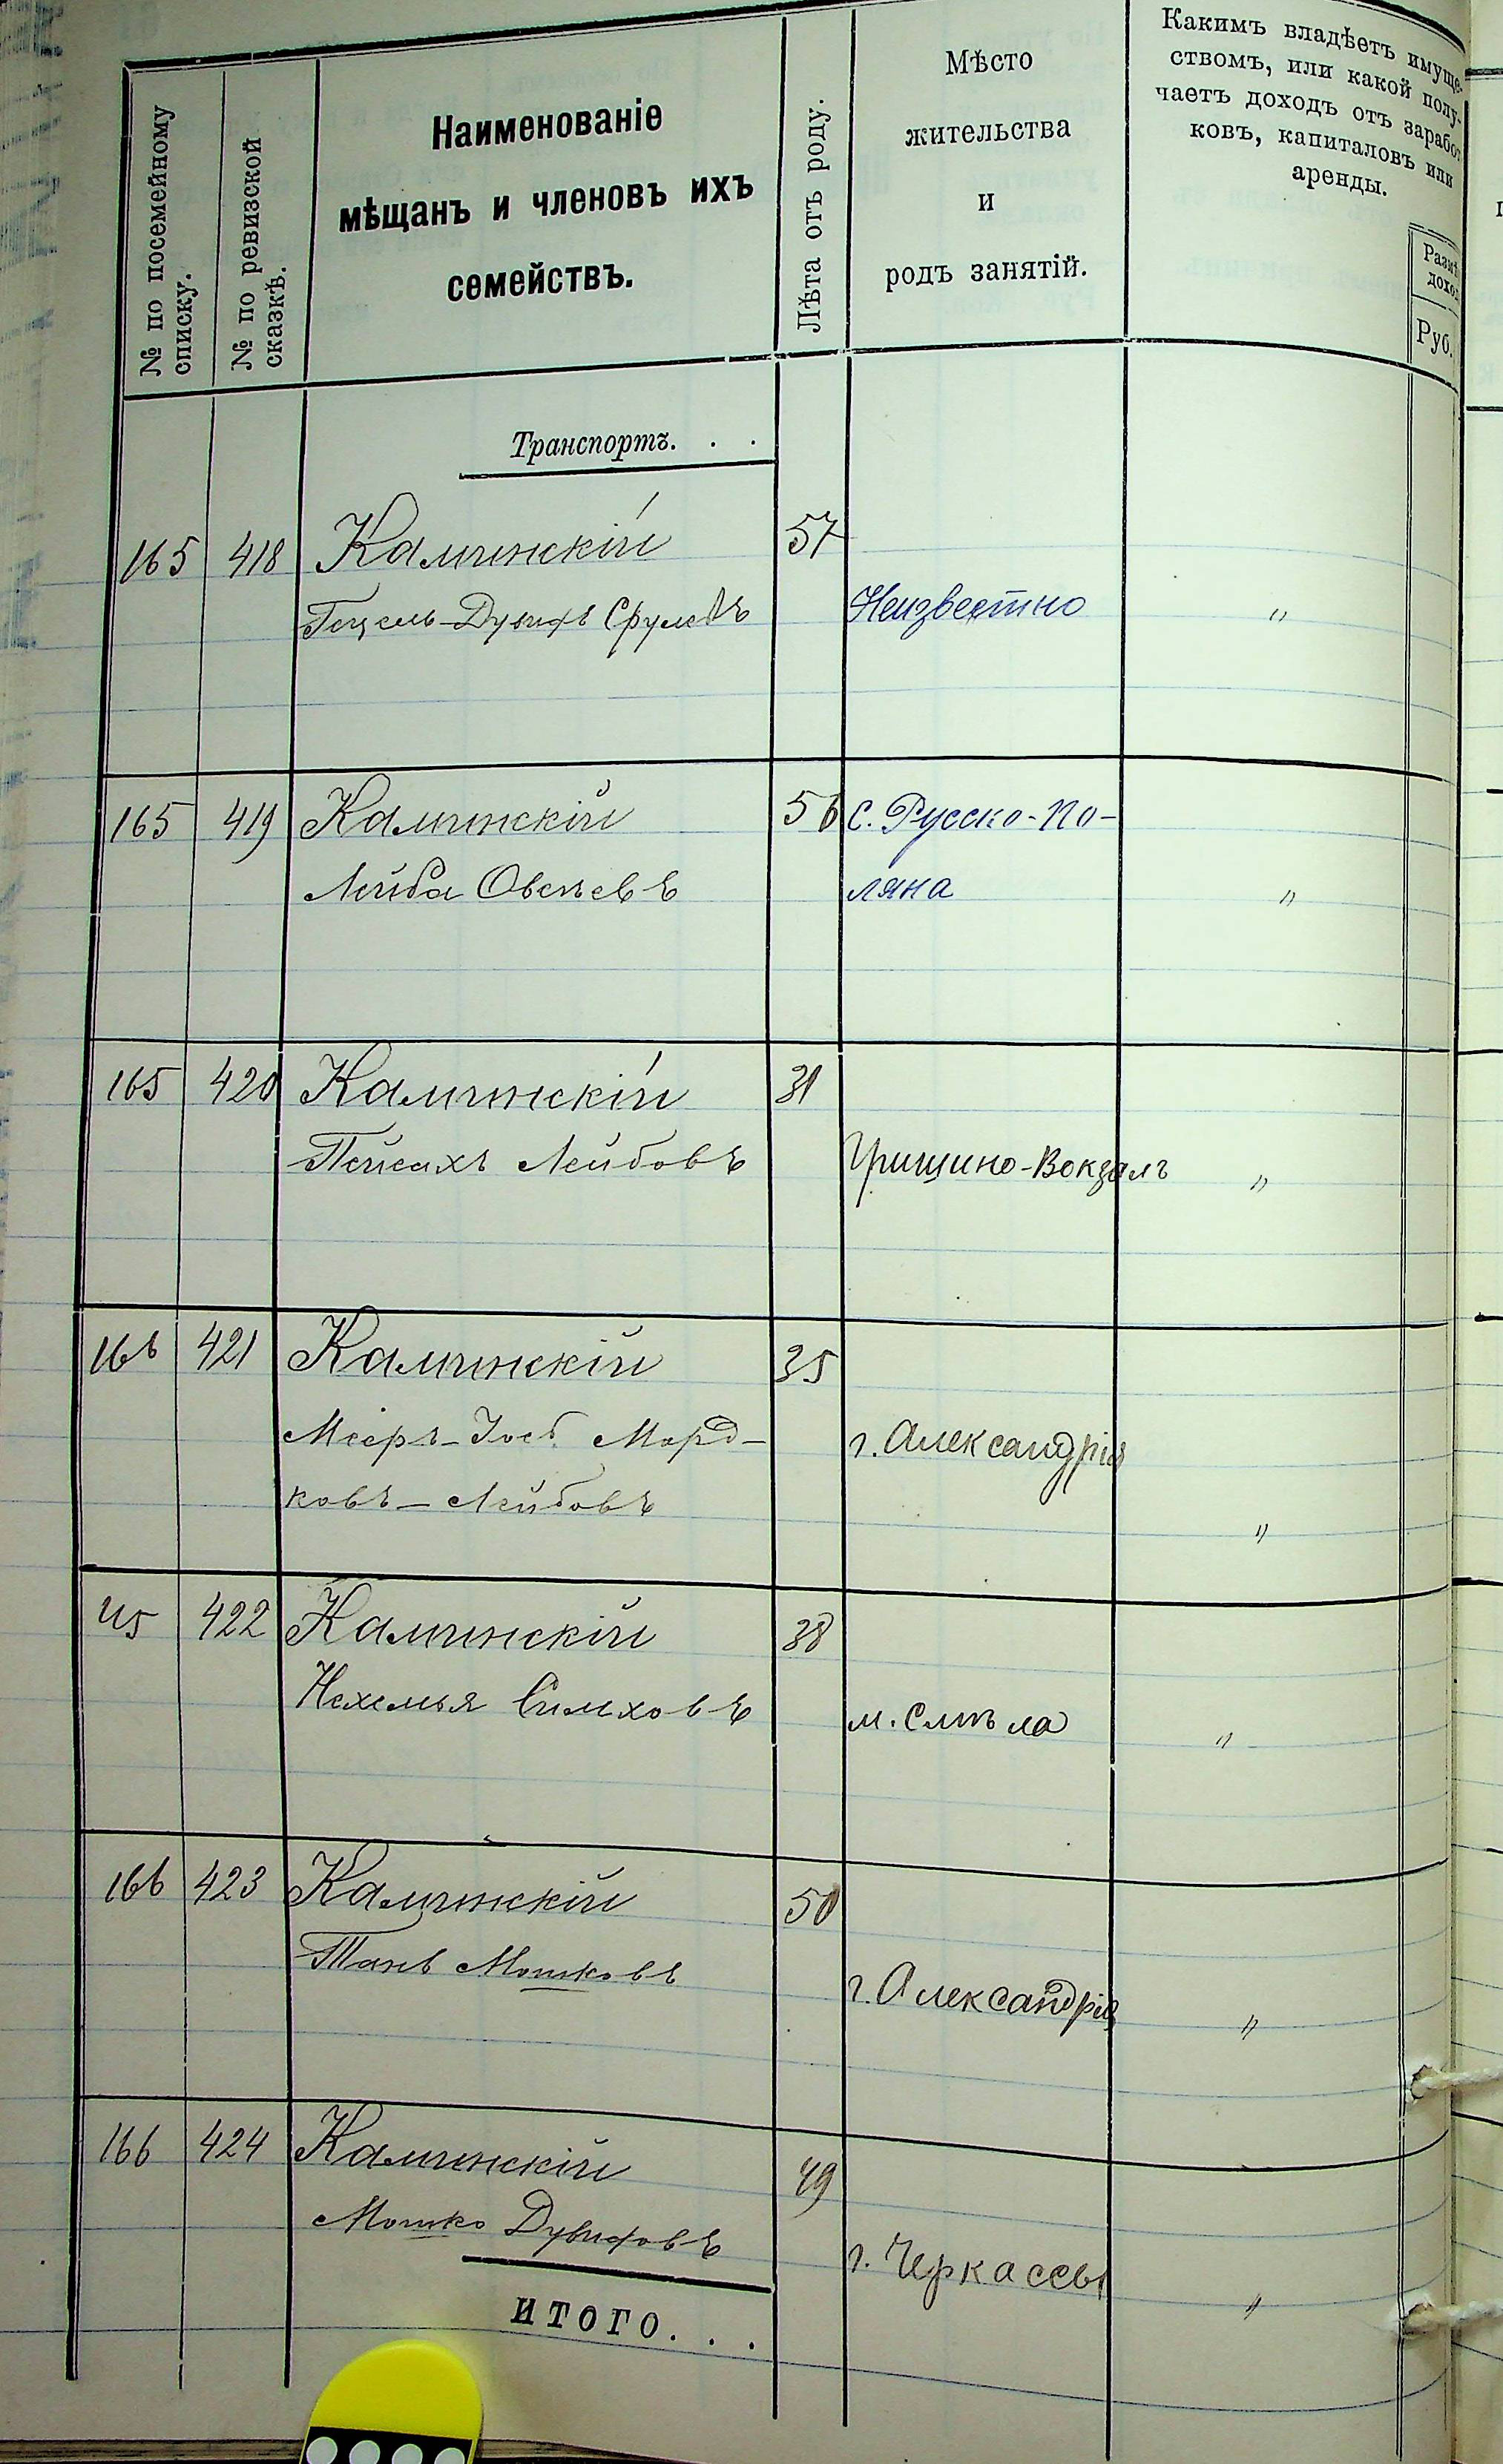 № по посемейному
списку.
№ по ревизской
сказкѣ.
Наименованіе
мѣщанъ и членовъ ихъ
семействъ.
Лѣта отъ роду.
Мѣсто
жительства
и
родъ занятій.
Какимъ владѣетъ имуще-
ствомъ, или какой полу-
чаетъ доходъ отъ заработ
ковъ, капиталовъ или
аренды.
Размѣ
доход
Руб.
Транспортъ. . .
165 418 Калинскій 57
Гецель-Дувидъ Срулевъ Неизвестно "
165 419 Калинскій 56 с. Русско-По-
Лейба Овсеевъ ляна "
165 420 Калинскій 31
Пейсахъ Лейбовъ Гришино-Вокзалъ "
166 421 Калинскій 35
Мееръ-Іось Морд- г. Александрія
ковъ-Лейбовъ "
422 Калинскій 38
Нехемья Симховъ м. Смѣла "
166 423 Калинскій 50
Мошковъ г. Александрія "
166 424 Калинскій 49
Мошко Дувидовъ г. Черкассы "
ИТОГО. . .